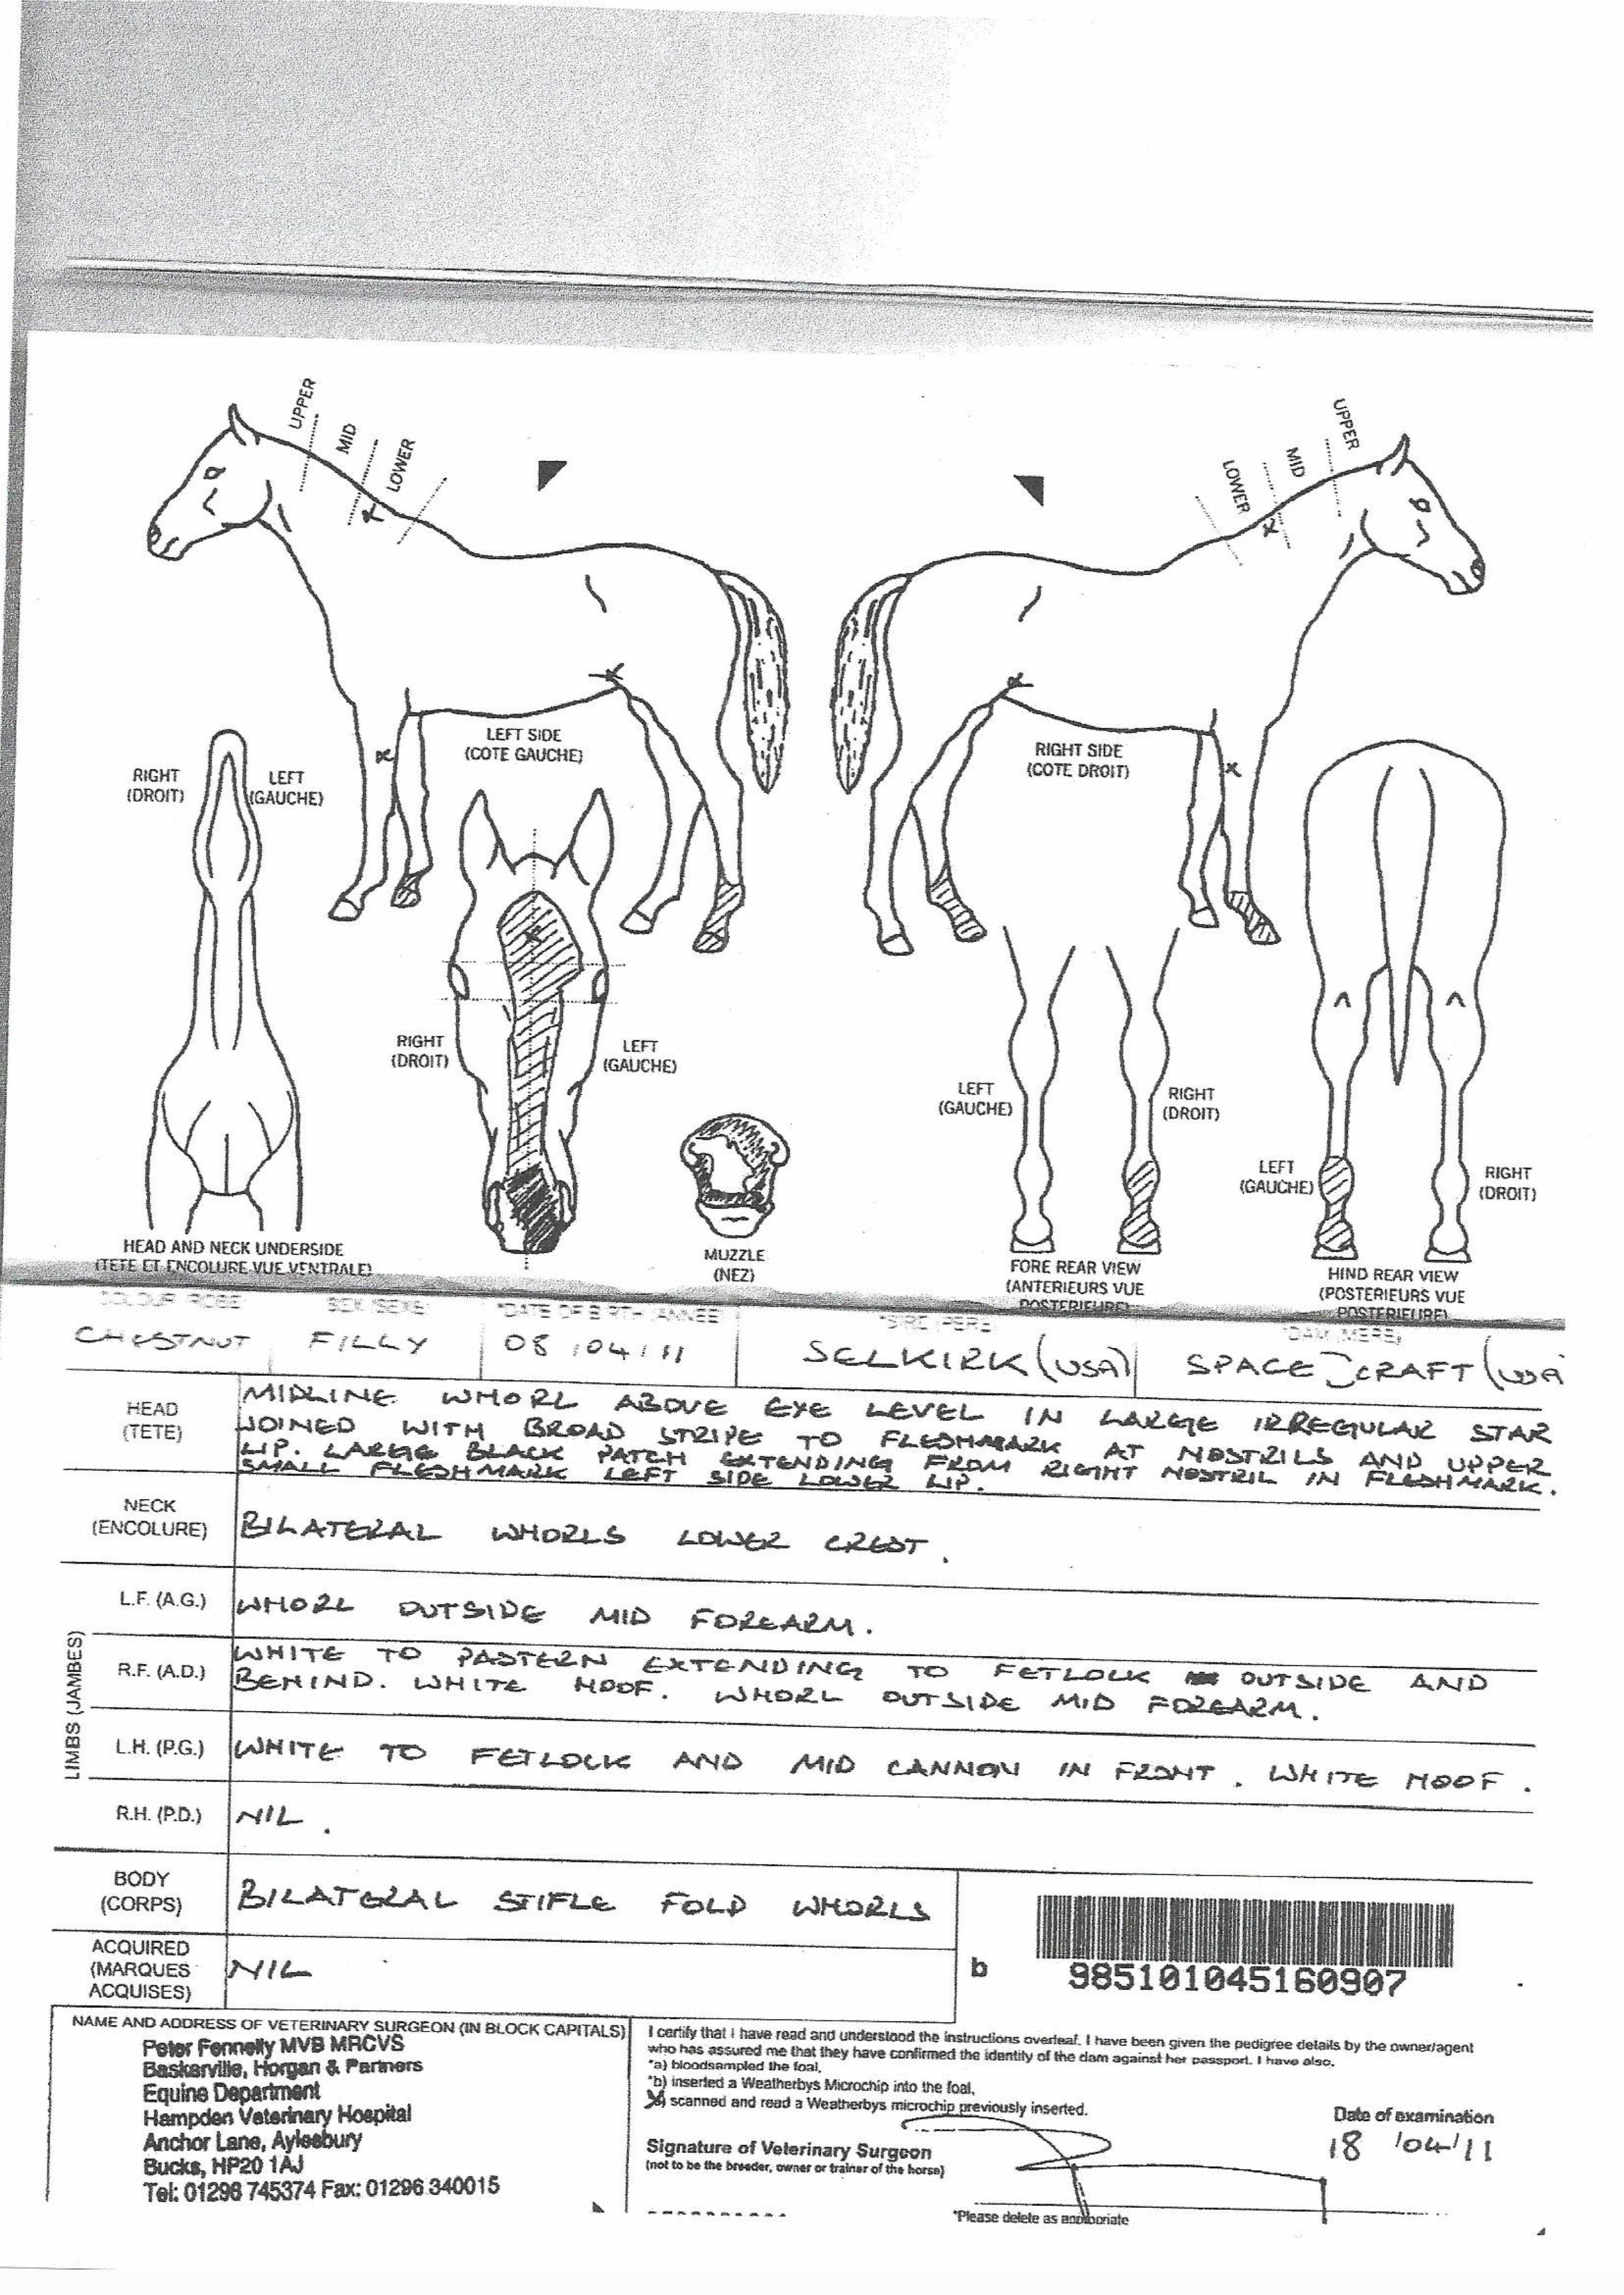 UPPER
MID
LOWER
UPPER
MID
LOWER
LEFT SIDE
(COTE GAUCHE)
RIGHT SIDE
(COTE DROIT)
RIGHT
(DROIT)
LEFT
(GAUCHE)
RIGHT
(DROIT)
LEFT
(GAUCHE)
LEFT
(GAUCHE)
RIGHT
(DROIT)
LEFT
(GAUCHE)
RIGHT
(DROIT)
HEAD AND NECK UNDERSIDE
(TETE ET ENCOLURE-VUE VENTRALE)
MUZZLE
(NEZ)
FORE REAR VIEW
(ANTERIEURS VUE
POSTERIEURE)
HIND REAR VIEW
(POSTERIEURS VUE
POSTERIEURE)
COLOUR ROBE SEX (SEXE) *DATE OF BIRTH (ANNEE) *SIRE (PERE) *DAM (MERE)
CHESTNUT FILLY 08/04/11 SELKIRK (USA) SPACE CRAFT (USA
HEAD
(TETE)
MIDLINE WHORL ABOVE EYE LEVEL IN LARGE IRREGULAR STAR
JOINED WITH BROAD STRIPE TO FLESHMARK AT NOSTRILS AND UPPER
LIP. LARGE BLACK PATCH EXTENDING FROM RIGHT NOSTRIL IN FLESHMARK.
SMALL FLESHMARK LEFT SIDE LOWER LIP.
NECK
(ENCOLURE)
BILATERAL WHORLS LOWER CREST.
LIMBS (JAMBES)
L.F. (A.G.) WHORL OUTSIDE MID FOREARM.
R.F. (A.D.) WHITE TO PASTERN EXTENDING TO FETLOCK OUTSIDE AND
BEHIND. WHITE HOOF. WHORL OUTSIDE MID FOREARM.
L.H. (P.G.) WHITE TO FETLOCK AND MID CANNON IN FRONT. WHITE HOOF.
R.H. (P.D.) NIL.
BODY
(CORPS)
BILATERAL STIFLE FOLD WHORLS
ACQUIRED
(MARQUES
ACQUISES)
NIL
b
985101045160907
NAME AND ADDRESS OF VETERINARY SURGEON (IN BLOCK CAPITALS)
Peter Fennelly MVB MRCVS
Baskerville, Horgan & Partners
Equine Department
Hampden Veterinary Hospital
Anchor Lane, Aylesbury
Bucks, HP20 1AJ
Tel: 01296 745374 Fax: 01296 340015
I certify that I have read and understood the instructions overleaf. I have been given the pedigree details by the owner/agent
who has assured me that they have confirmed the identity of the dam against her passport. I have also.
*a) bloodsampled the foal,
*b) inserted a Weatherbys Microchip into the foal,
scanned and read a Weatherbys microchip previously inserted.
Signature of Veterinary Surgeon
(not to be the breeder, owner or trainer of the horse)
Date of examination
18/04/11
*Please delete as appropriate